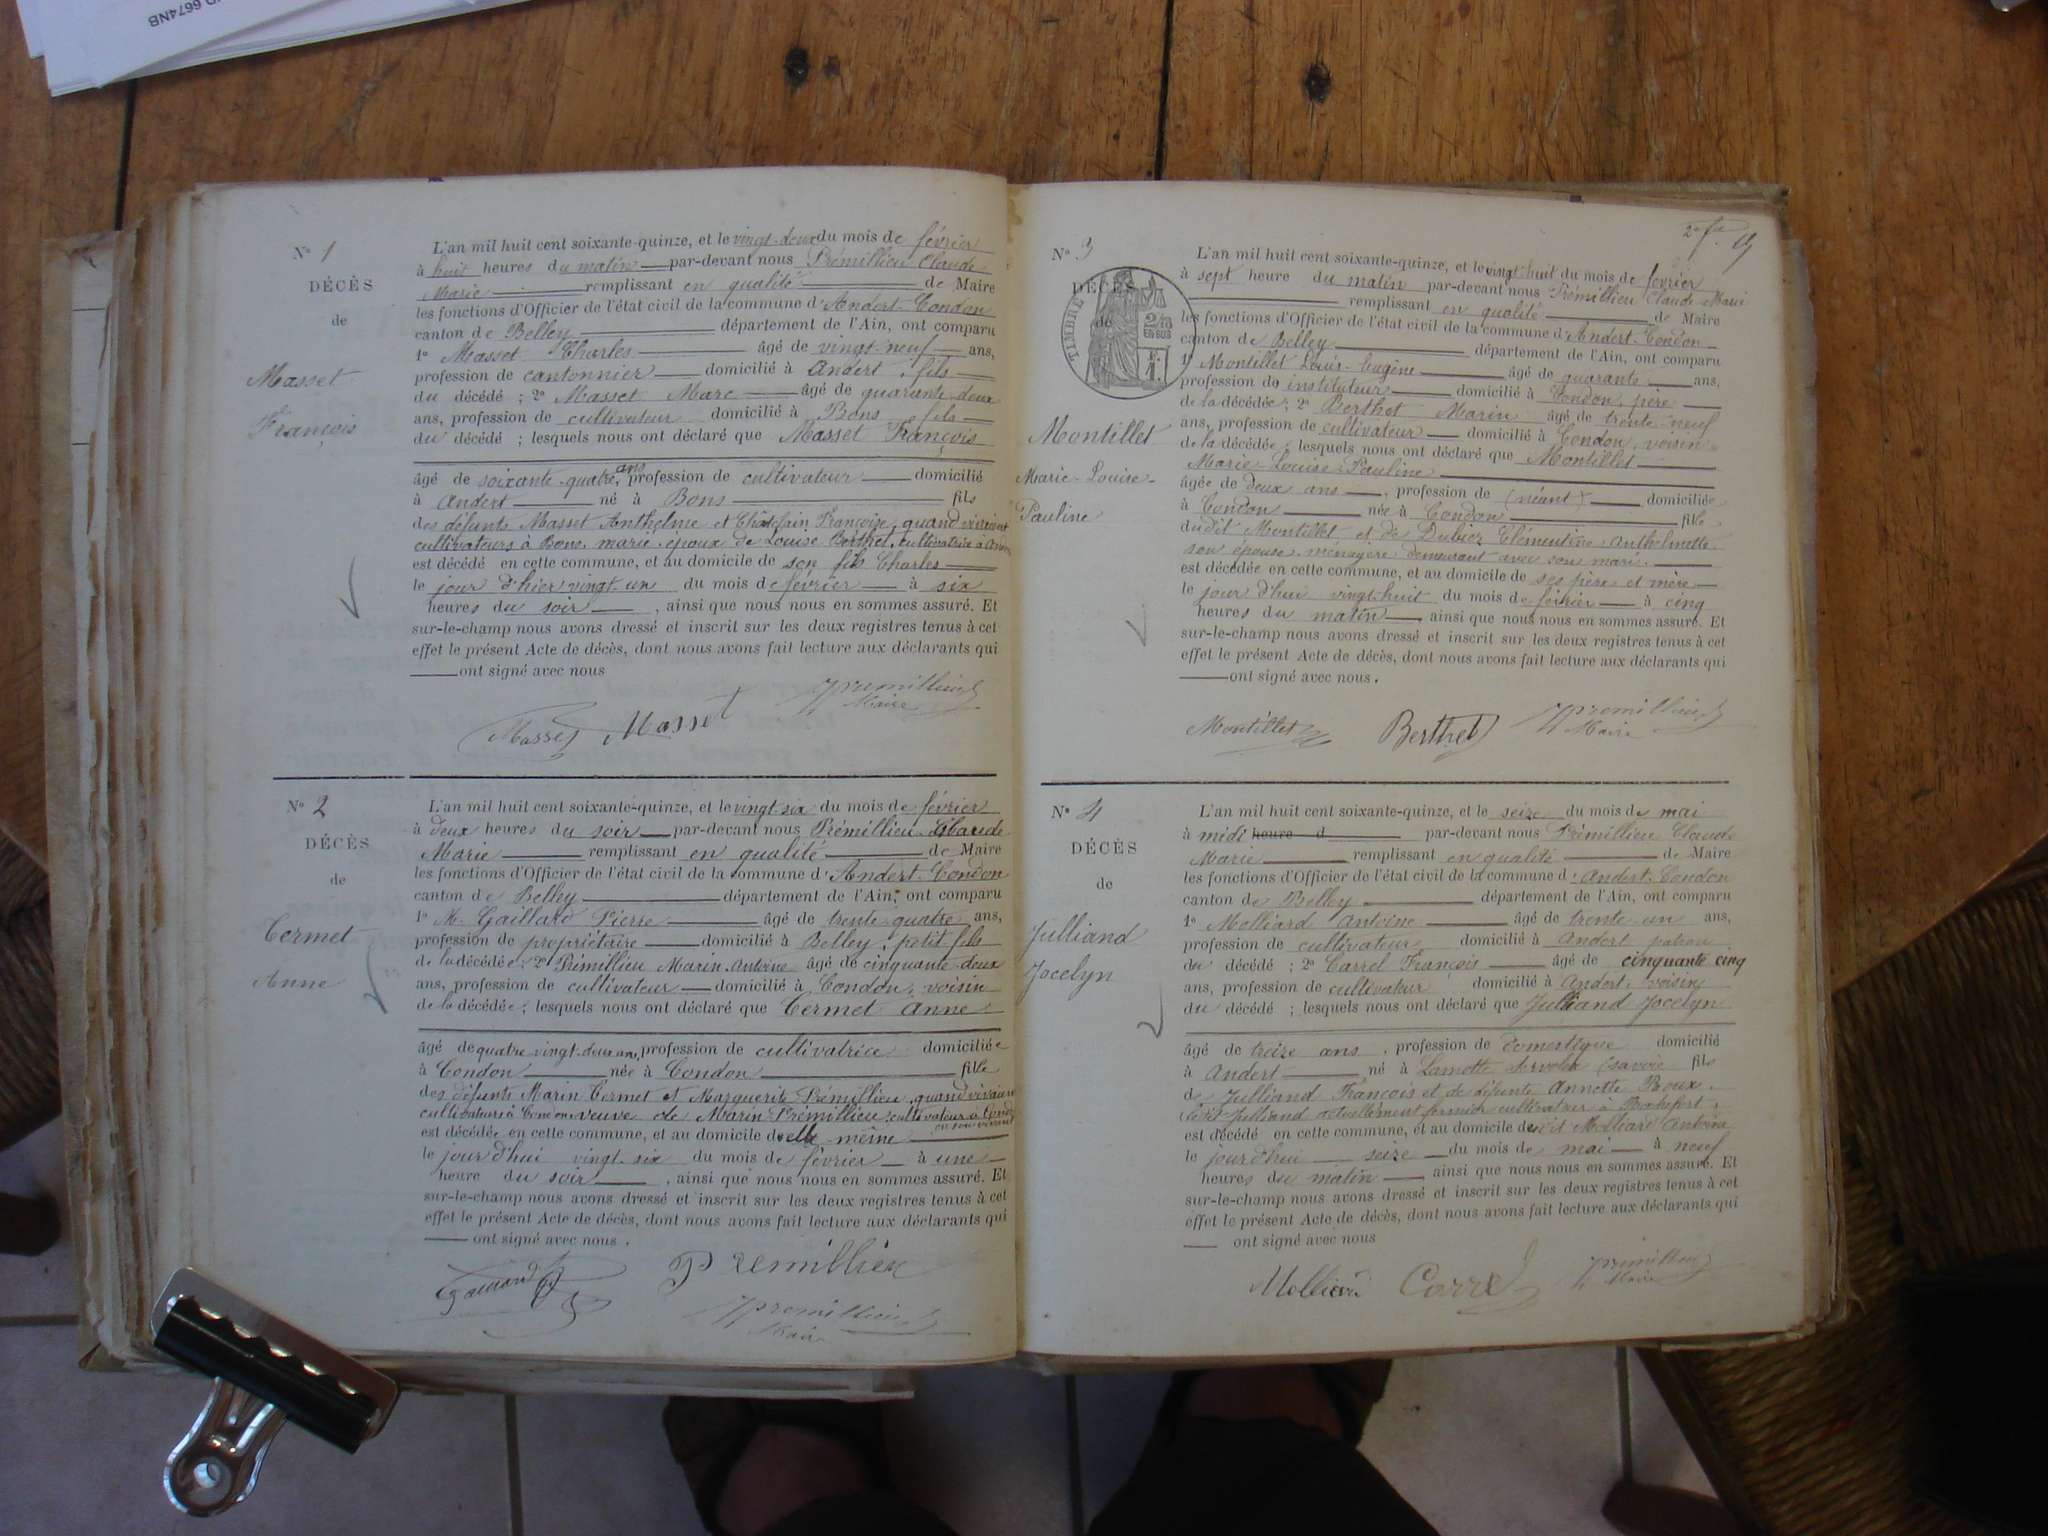 6674NB
N° 1
DÉCÈS
de
Masset
François
L'an mil huit cent soixante-quinze, et le vingt-deux du mois de février
à huit heures du matin par-devant nous Prémillieu Claude
Marie remplissant en qualité de Maire
les fonctions d'Officier de l'état civil de la commune d'Andert-Condon
canton de Belley département de l'Ain, ont comparu
1° Masset Charles âgé de vingt-neuf ans,
profession de cantonnier domicilié à Andert, fils
du décédé ; 2° Masset Marc âgé de quarante-deux
ans, profession de cultivateur domicilié à Bons fils
du décédé ; lesquels nous ont déclaré que Masset François
âgé de soixante-quatre ans, profession de cultivateur domicilié
à Andert né à Bons fils
des défunts Masset Anthelme et Chatelain Françoise, quand vivaient
cultivateurs à Bons, marié, époux de Louise Berthet, cultivatrice à Andert
est décédé en cette commune, et au domicile de son fils Charles
le jour d'hier vingt-un du mois de février à six
heures du soir, ainsi que nous nous en sommes assuré. Et
sur-le-champ nous avons dressé et inscrit sur les deux registres tenus à cet
effet le présent Acte de décès, dont nous avons fait lecture aux déclarants qui
ont signé avec nous
Masset Masset Premillieu
Maire
N° 2
DÉCÈS
de
Cermet
Anne
L'an mil huit cent soixante-quinze, et le vingt six du mois de février
à deux heures du soir par-devant nous Prémillieu Claude
Marie remplissant en qualité de Maire
les fonctions d'Officier de l'état civil de la commune d'Andert-Condon
canton de Belley département de l'Ain, ont comparu
1° M. Gaillard Pierre âgé de trente quatre ans,
profession de propriétaire domicilié à Belley, petit fils
de la décédée ; 2° Prémillieu Marin Antoine âgé de cinquante-deux
ans, profession de cultivateur domicilié à Condon, voisin
de la décédée ; lesquels nous ont déclaré que Cermet Anne
âgé de quatre vingt-deux ans, profession de cultivatrice domiciliée
à Condon née à Condon fille
des défunts Marin Cermet et Marguerite Prémillieu, quand vivaient
cultivateurs à Condon veuve de Marin Prémillieu cultivateur à Condon
en son vivant
est décédée en cette commune, et au domicile d'elle-même
le jour d'hui vingt-six du mois de février à une
heure du soir, ainsi que nous nous en sommes assuré. Et
sur-le-champ nous avons dressé et inscrit sur les deux registres tenus à cet
effet le présent Acte de décès, dont nous avons fait lecture aux déclarants qui
ont signé avec nous.
Premillieu
Premillieu
Maire
N° 3
DÉCÈS
de
TIMBRE
Montillet
Marie-Louise-
Pauline
L'an mil huit cent soixante-quinze, et le vingt-huit du mois de février
à sept heure du matin par-devant nous Prémillieu Claude Marie
remplissant en qualité de Maire
les fonctions d'Officier de l'état civil de la commune d'Andert-Condon
canton de Belley département de l'Ain, ont comparu
1° Montillet Louis-Eugène âgé de quarante ans,
profession de instituteur domicilié à Condon, père
de la décédée ; 2° Berthet Marin âgé de trente-neuf
ans, profession de cultivateur domicilié à Condon, voisin
de la décédée ; lesquels nous ont déclaré que Montillet
Marie-Louise-Pauline
âgée de deux ans, profession de (néant) domiciliée
à Condon née à Condon fille
du dit Montillet, et de Dubiez Clémentine Anthelmette
son épouse, ménagère demeurant avec son mari.
est décédée en cette commune, et au domicile de ses père et mère
le jour d'hui vingt-huit du mois de février à cinq
heures du matin, ainsi que nous nous en sommes assuré. Et
sur-le-champ nous avons dressé et inscrit sur les deux registres tenus à cet
effet le présent Acte de décès, dont nous avons fait lecture aux déclarants qui
ont signé avec nous.
Montillet Berthet Premillieu
Maire
N° 4
DÉCÈS
de
Julliand
Jocelyn
L'an mil huit cent soixante-quinze, et le seize du mois de mai
à midi heure d par-devant nous Prémillieu Claude
Marie remplissant en qualité de Maire
les fonctions d'Officier de l'état civil de la commune d'Andert-Condon
canton de Belley département de l'Ain, ont comparu
1° Molliard Antoine âgé de trente-un ans,
profession de cultivateur domicilié à Andert patron
du décédé ; 2° Carrel François âgé de cinquante cinq
ans, profession de cultivateur domicilié à Andert, voisin
du décédé ; lesquels nous ont déclaré que Julliand Jocelyn
âgé de treize ans, profession de domestique domicilié
à Andert né à Lamotte Servolex (savoie) fils
de Julliand François et de défunte Annette Roux.
Julliand actuellement fermier cultivateur à Rochefort,
est décédé en cette commune, et au domicile de dit Molliard Antoine
le jour d'hui seize du mois de mai à neuf
heures du matin, ainsi que nous nous en sommes assuré. Et
sur-le-champ nous avons dressé et inscrit sur les deux registres tenus à cet
effet le présent Acte de décès, dont nous avons fait lecture aux déclarants qui
ont signé avec nous
Premillieu
Maire